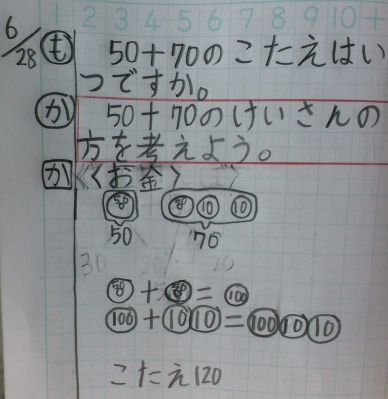 1 2 3 4 5 6 7 8 9 10 +
6/28 も 50+70のこたえはい
つですか。
か 50+70のけいさんの
方を考えよう。
か 《お金》
50 50 10 10
50 70
30 20
50 + 50 = 100
100 + 10 10 = 100 10 10
こたえ120